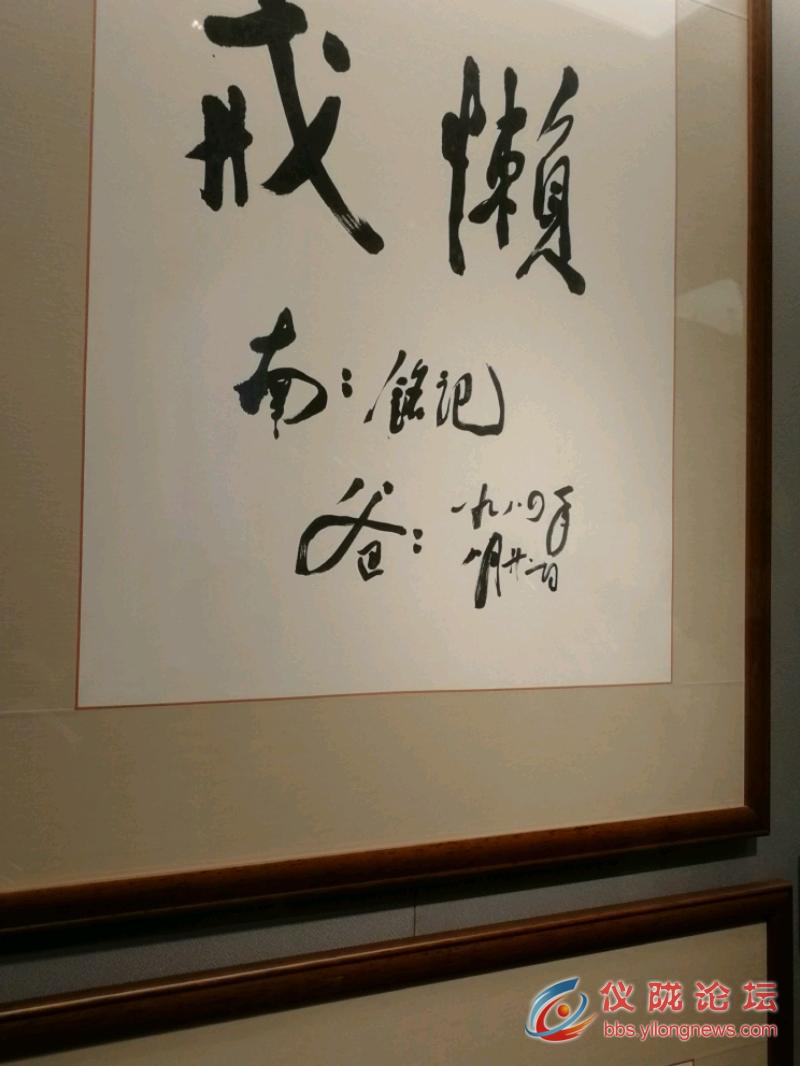 戒懒
南：铭记
爸：一九八四年
八月廿二日
仪陇论坛
bbs.yilongnews.com